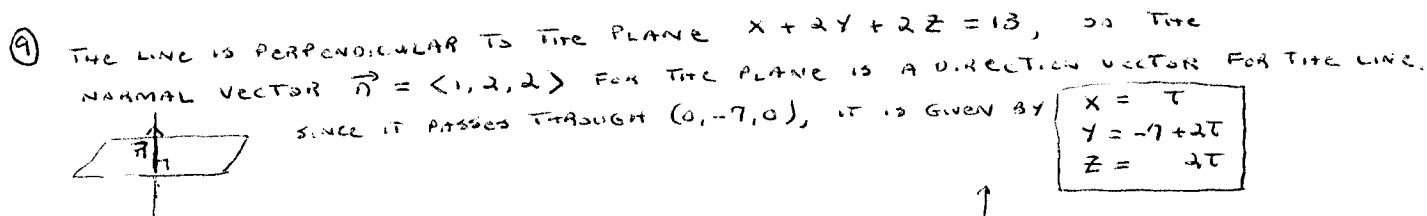 ⑨ THE LINE IS PERPENDICULAR TO THE PLANE X + 2Y + 2Z = 13, SO THE
NORMAL VECTOR n⃗ = <1, 2, 2> FOR THE PLANE IS A DIRECTION VECTOR FOR THE LINE.
SINCE IT PASSES THROUGH (0, -7, 0), IT IS GIVEN BY
X = T
Y = -7 + 2T
Z = 2T
n⃗